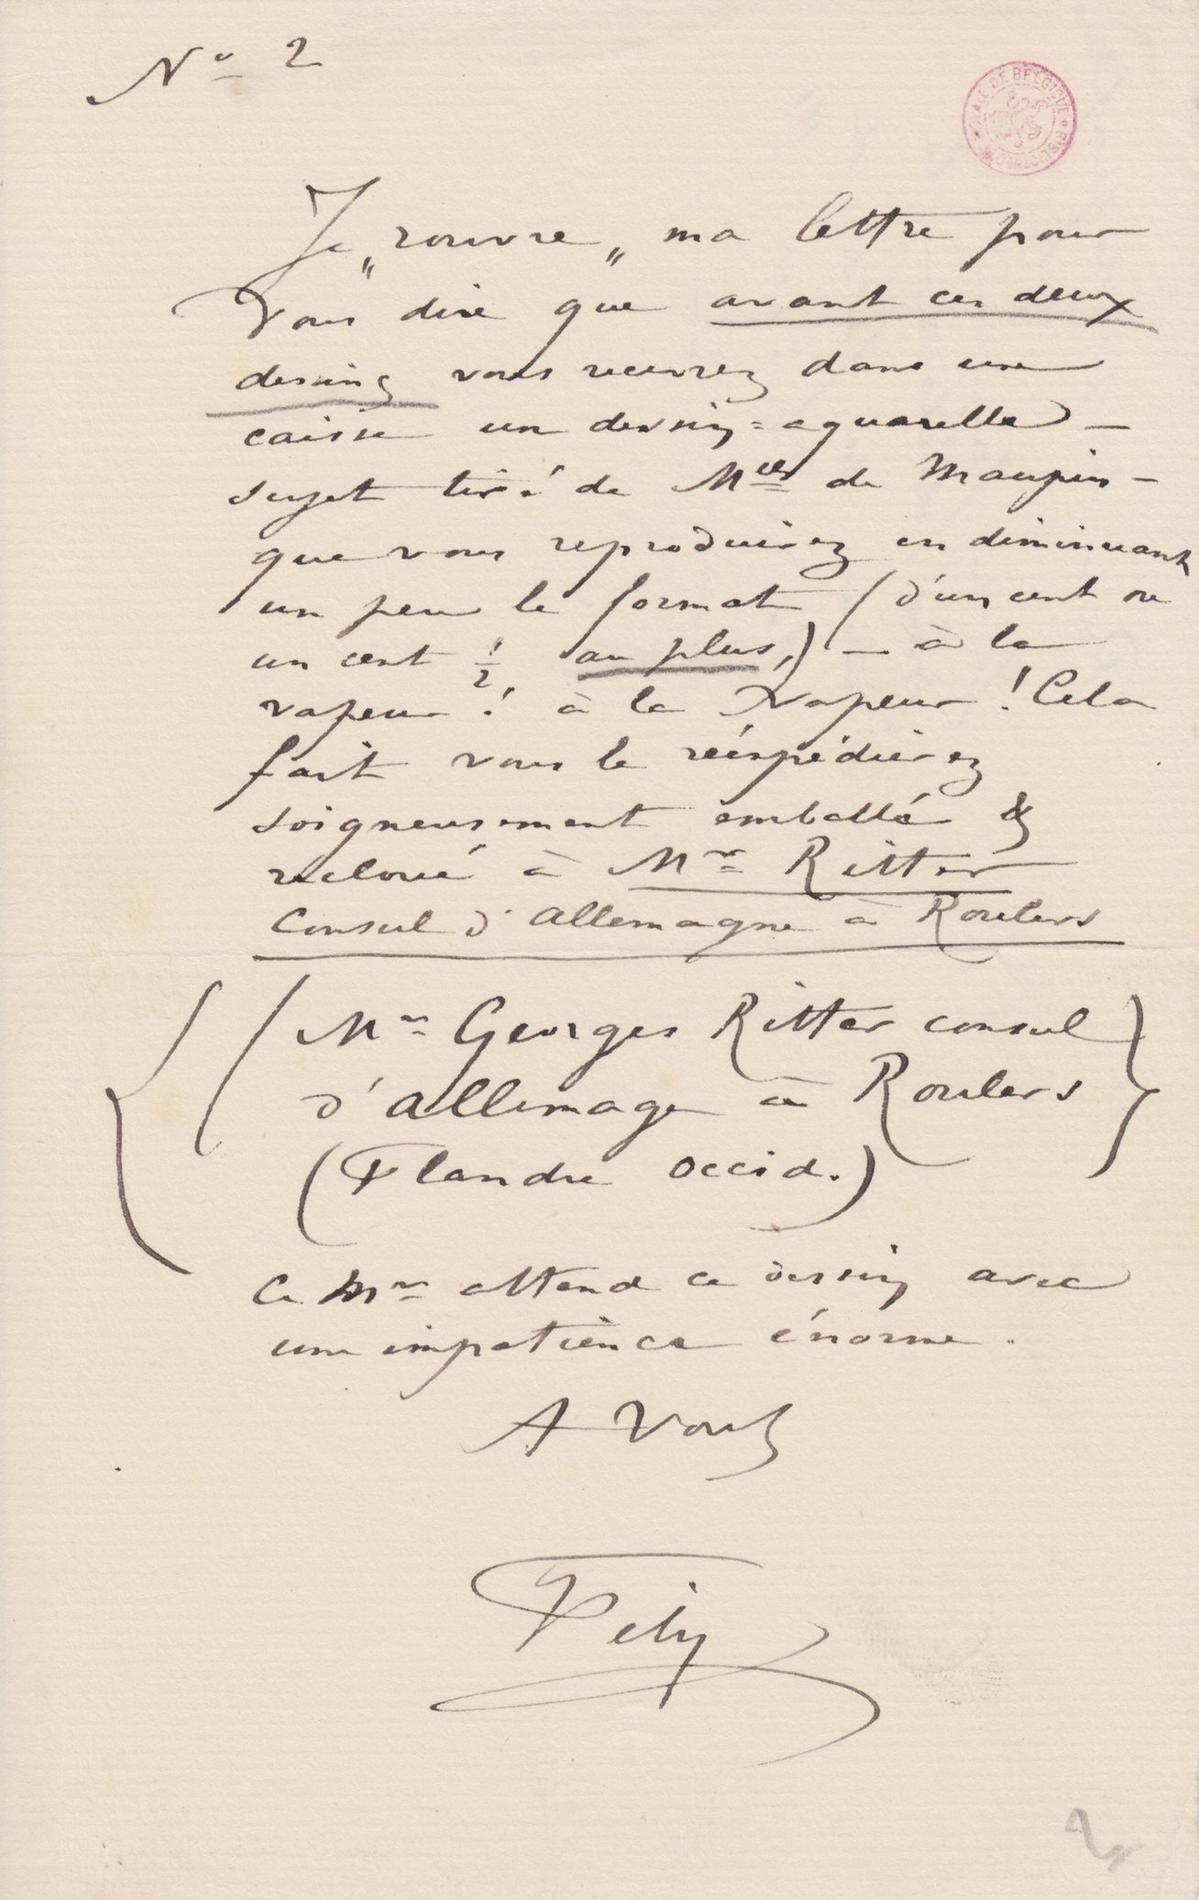 No 2
Je „rouvre„ ma lettre pour
vous dire que avant ces deux
dessins vous recevrez dans une
caisse un dessin=aquarelle –
sujet tiré de Mlle de Maupin –
que vous reproduirez en diminuant
un peu le format (d'un cent ou
un cent 1/2 au plus,) – à la
vapeur! à la vapeur! Cela
fait vous le réexpédierez
soigneusement emballé &
recloué à Mr Ritter
Consul d'Allemagne à Roulers
(Mr Georges Ritter consul
d'allemage à Roulers
(Flandre occid.)
Ce Mr attend ce dessin avec
une impatience énorme.
A Vous
Fély
2